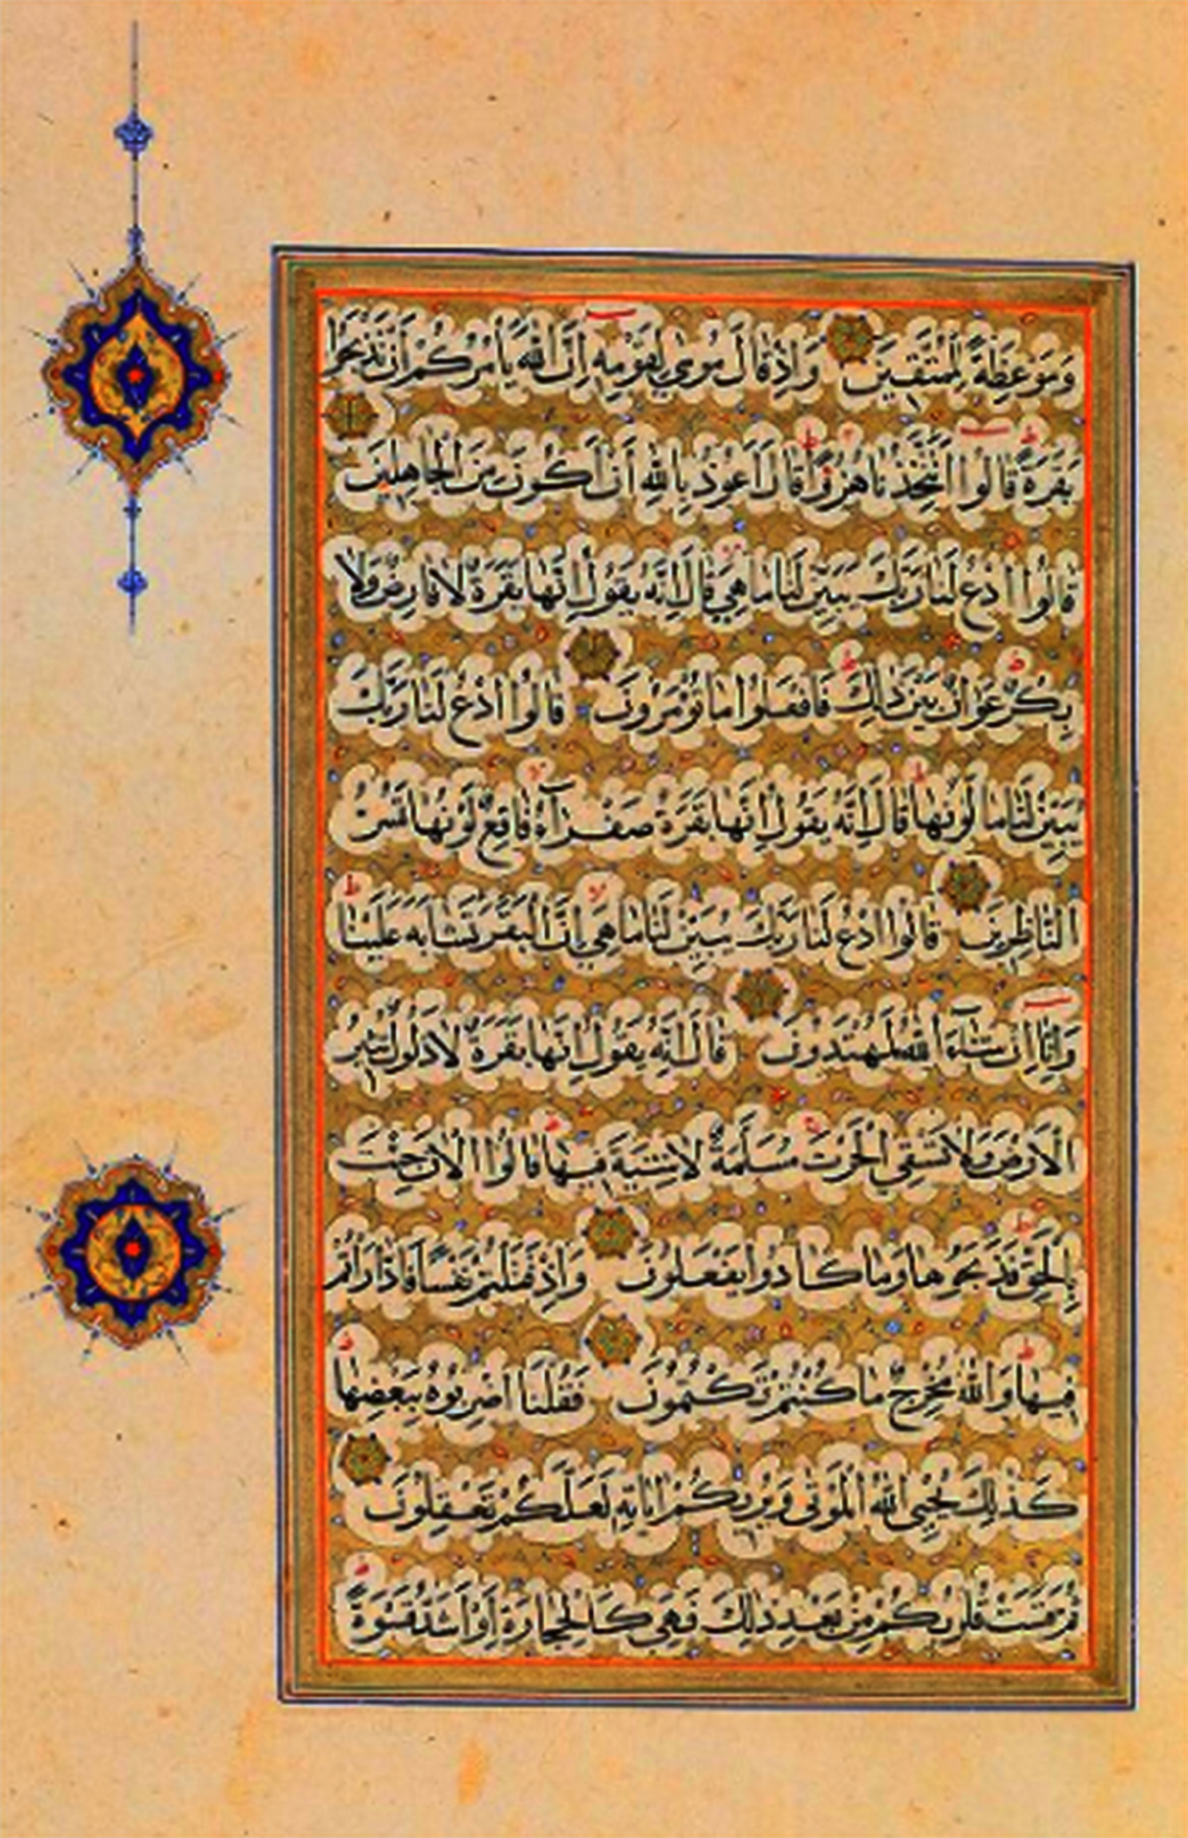 وَمَوْعِظَةً لِلْمُتَّقِينَ وَإِذْ قَالَ مُوسَى لِقَوْمِهِ إِنَّ اللَّهَ يَأْمُرُكُمْ أَنْ تَذْبَحُوا
بَقَرَةً قَالُوا أَتَتَّخِذُنَا هُزُوًا قَالَ أَعُوذُ بِاللَّهِ أَنْ أَكُونَ مِنَ الْجَاهِلِينَ
قَالُوا ادْعُ لَنَا رَبَّكَ يُبَيِّنْ لَنَا مَا هِيَ قَالَ إِنَّهُ يَقُولُ إِنَّهَا بَقَرَةٌ لَا فَارِضٌ وَلَا
بِكْرٌ عَوَانٌ بَيْنَ ذَلِكَ فَافْعَلُوا مَا تُؤْمَرُونَ قَالُوا ادْعُ لَنَا رَبَّكَ
يُبَيِّنْ لَنَا مَا لَوْنُهَا قَالَ إِنَّهُ يَقُولُ إِنَّهَا بَقَرَةٌ صَفْرَآءُ فَاقِعٌ لَوْنُهَا تَسُرُّ
النَّاظِرِينَ قَالُوا ادْعُ لَنَا رَبَّكَ يُبَيِّنْ لَنَا مَا هِيَ إِنَّ الْبَقَرَ تَشَابَهَ عَلَيْنَا
وَإِنَّا إِنْ شَآءَ اللَّهُ لَمُهْتَدُونَ قَالَ إِنَّهُ يَقُولُ إِنَّهَا بَقَرَةٌ لَا ذَلُولٌ تُثِيرُ
الْأَرْضَ وَلَا تَسْقِي الْحَرْثَ مُسَلَّمَةٌ لَا شِيَةَ فِيهَا قَالُوا الْآنَ جِئْتَ
بِالْحَقِّ فَذَبَحُوهَا وَمَا كَادُوا يَفْعَلُونَ وَإِذْ قَتَلْتُمْ نَفْسًا فَادَّارَأْتُمْ
فِيهَا وَاللَّهُ مُخْرِجٌ مَا كُنْتُمْ تَكْتُمُونَ فَقُلْنَا اضْرِبُوهُ بِبَعْضِهَا
كَذَلِكَ يُحْيِي اللَّهُ الْمَوْتَى وَيُرِيكُمْ آيَاتِهِ لَعَلَّكُمْ تَعْقِلُونَ
ثُمَّ قَسَتْ قُلُوبُكُمْ مِنْ بَعْدِ ذَلِكَ فَهِيَ كَالْحِجَارَةِ أَوْ أَشَدُّ قَسْوَةً